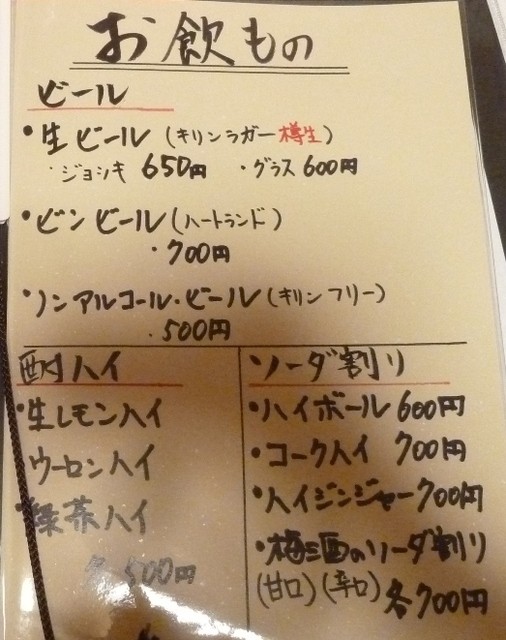 お飲もの
ビール
・生ビール(キリンラガー樽生)
・ジョッキ 650円 ・グラス 600円
・ビンビール(ハートランド)
・700円
・ノンアルコール・ビール(キリンフリー)
・500円
酎ハイ
・生レモンハイ
ウーロンハイ
緑茶ハイ
各 500円
ソーダ割り
・ハイボール 600円
・コークハイ 700円
・ハイジンジャー 700円
・梅酒のソーダ割り
(甘口)(辛口) 各700円